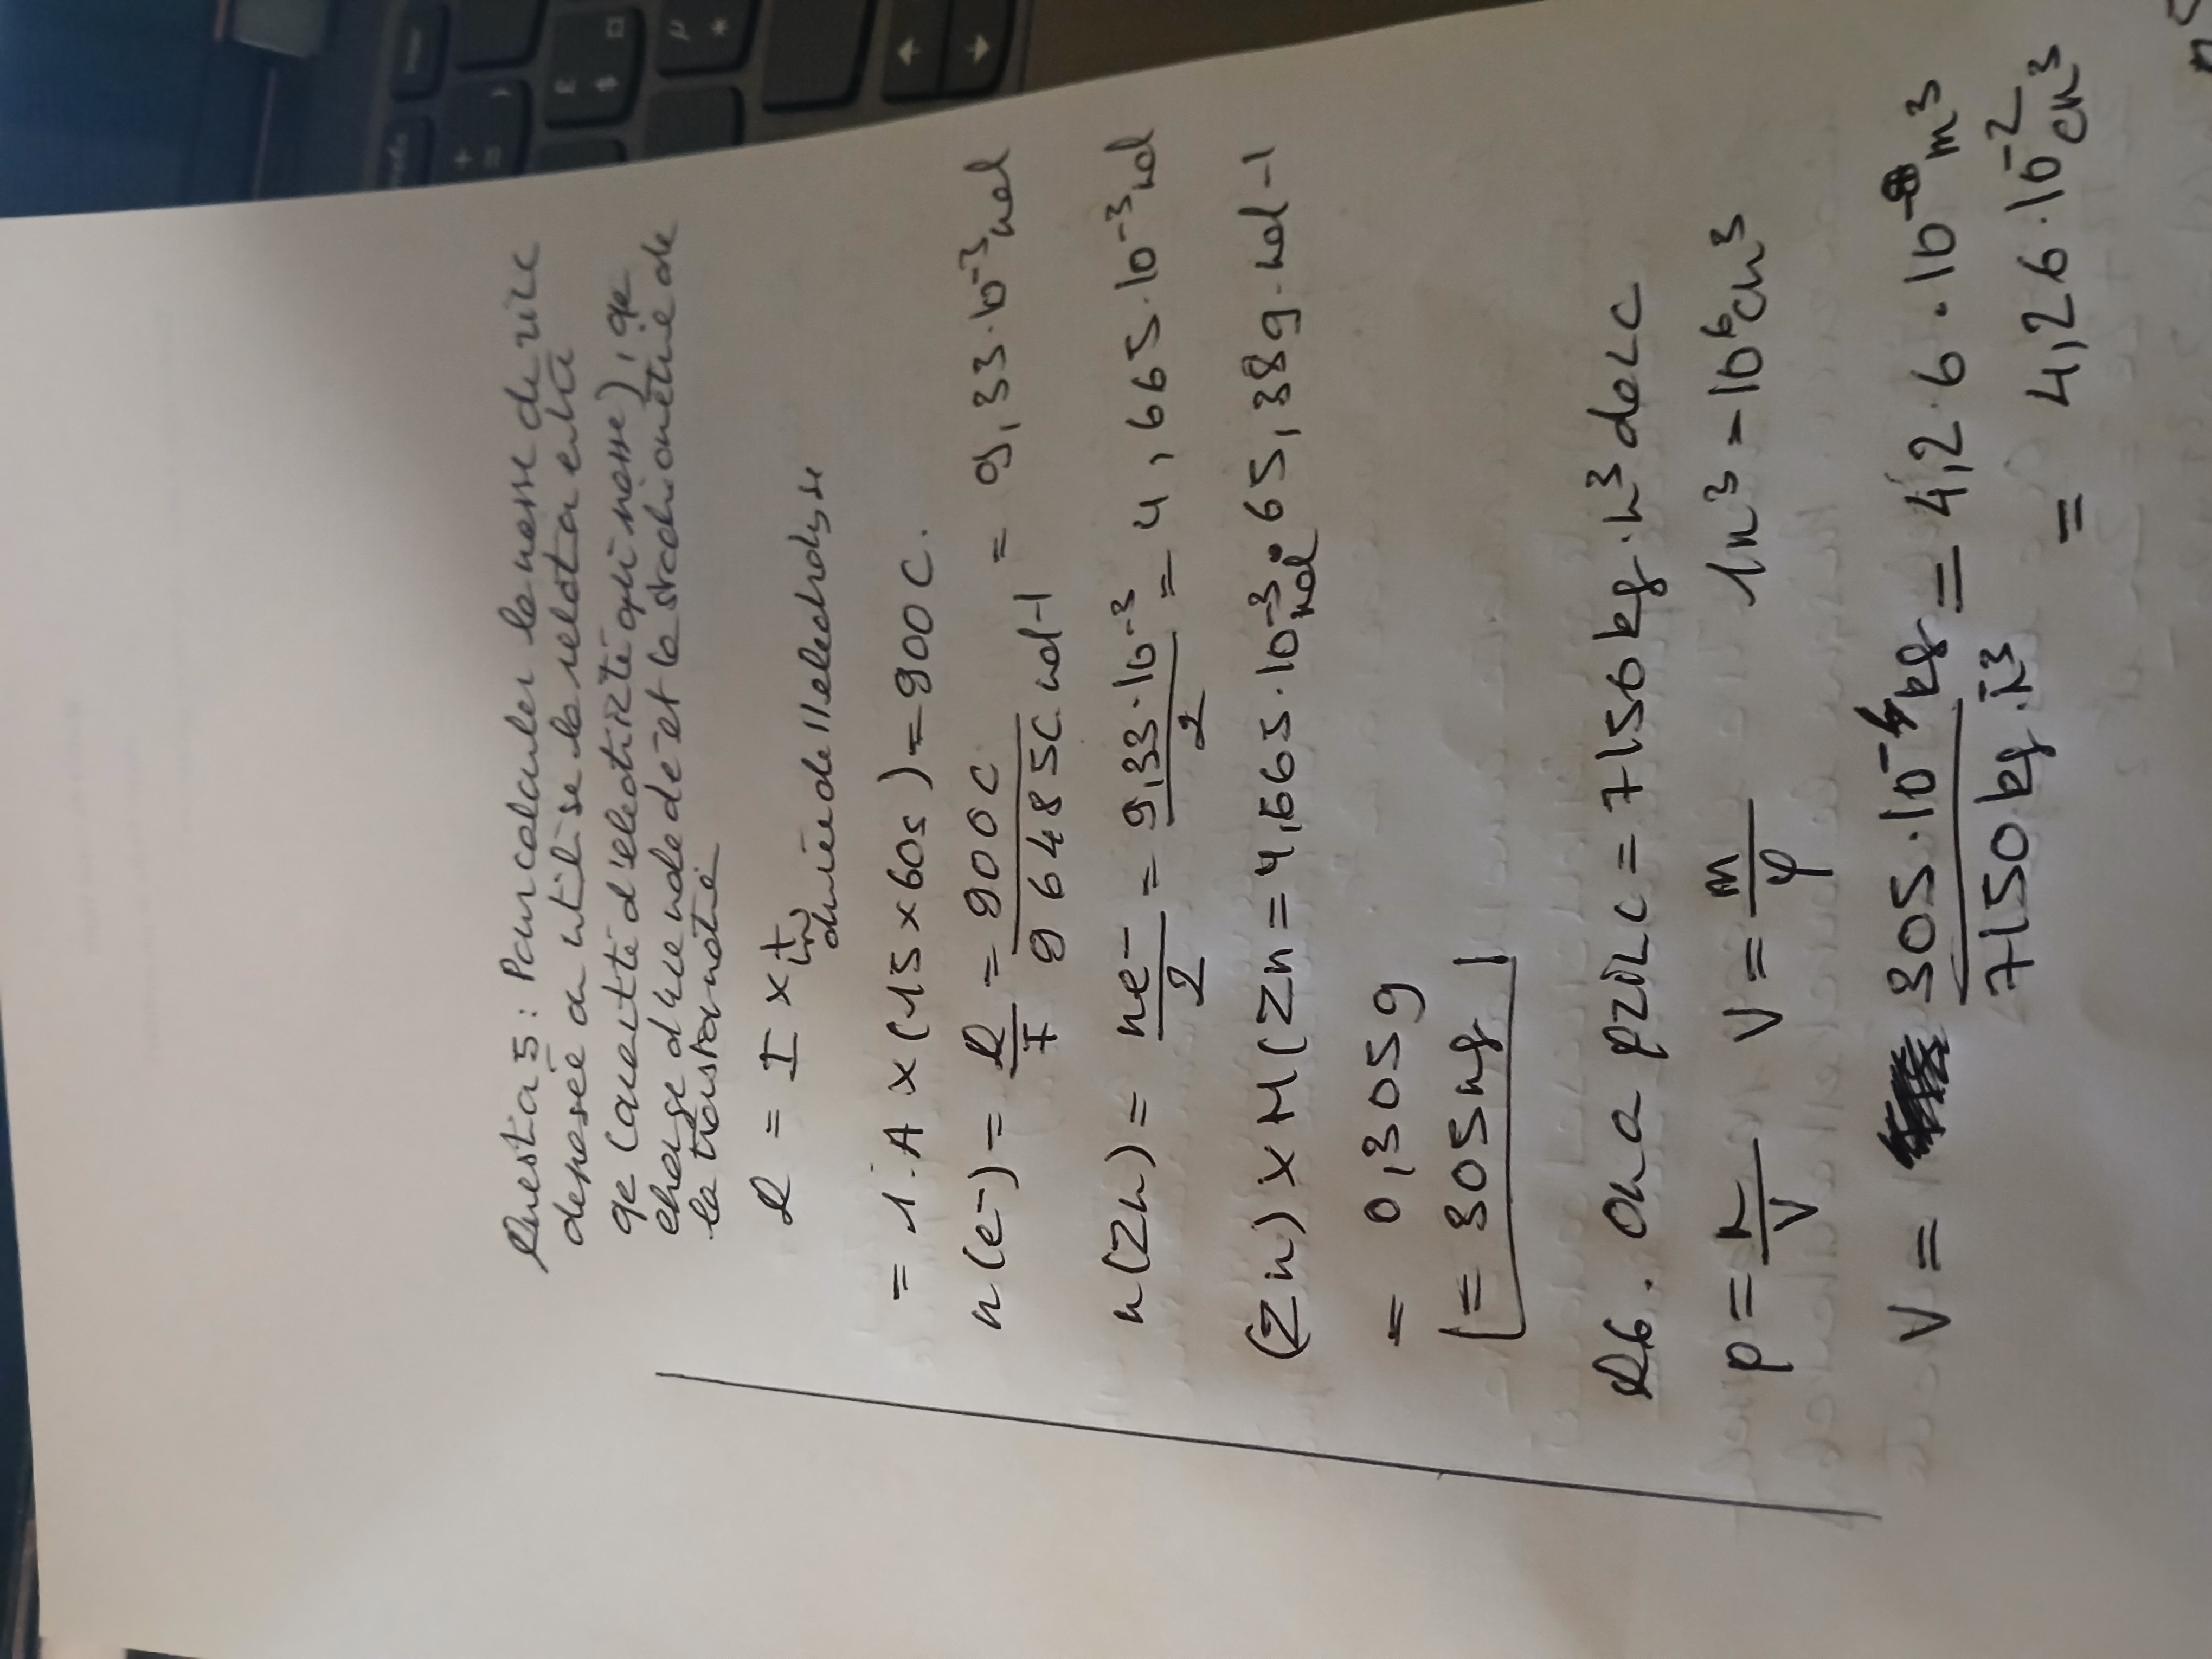 Question 5 : Pour calculer la masse de zinc
déposée on utilise la relation entre la
qe (quantité d'électricité qui passe), qe
charge d'une mole d'e- et la stœchiométrie de
la
Q = I × t
durée de l'électrolyse
= 1.A × (15 × 60s) = 900 C.
n(e-) = Q/F = 900 C / 96485C.mol-1 = 9,33.10^-3 mol
n(Zn) = ne-/2 = 9,33.10^-3/2 = 4,665.10^-3 mol
(Zn) × M(Zn = 4,665.10^-3 mol . 65,38g.mol-1
= 0,305g
= 305mg
Q6. On a ρzinc = 7150kg.m^3 donc
ρ = m/V V = m/ρ 1m^3 = 10^6 cm^3
V = 305.10^-4 kg / 7150kg.m^3 = 4,2.6.10^-8 m^3
= 4,26.10^-2 cm^3